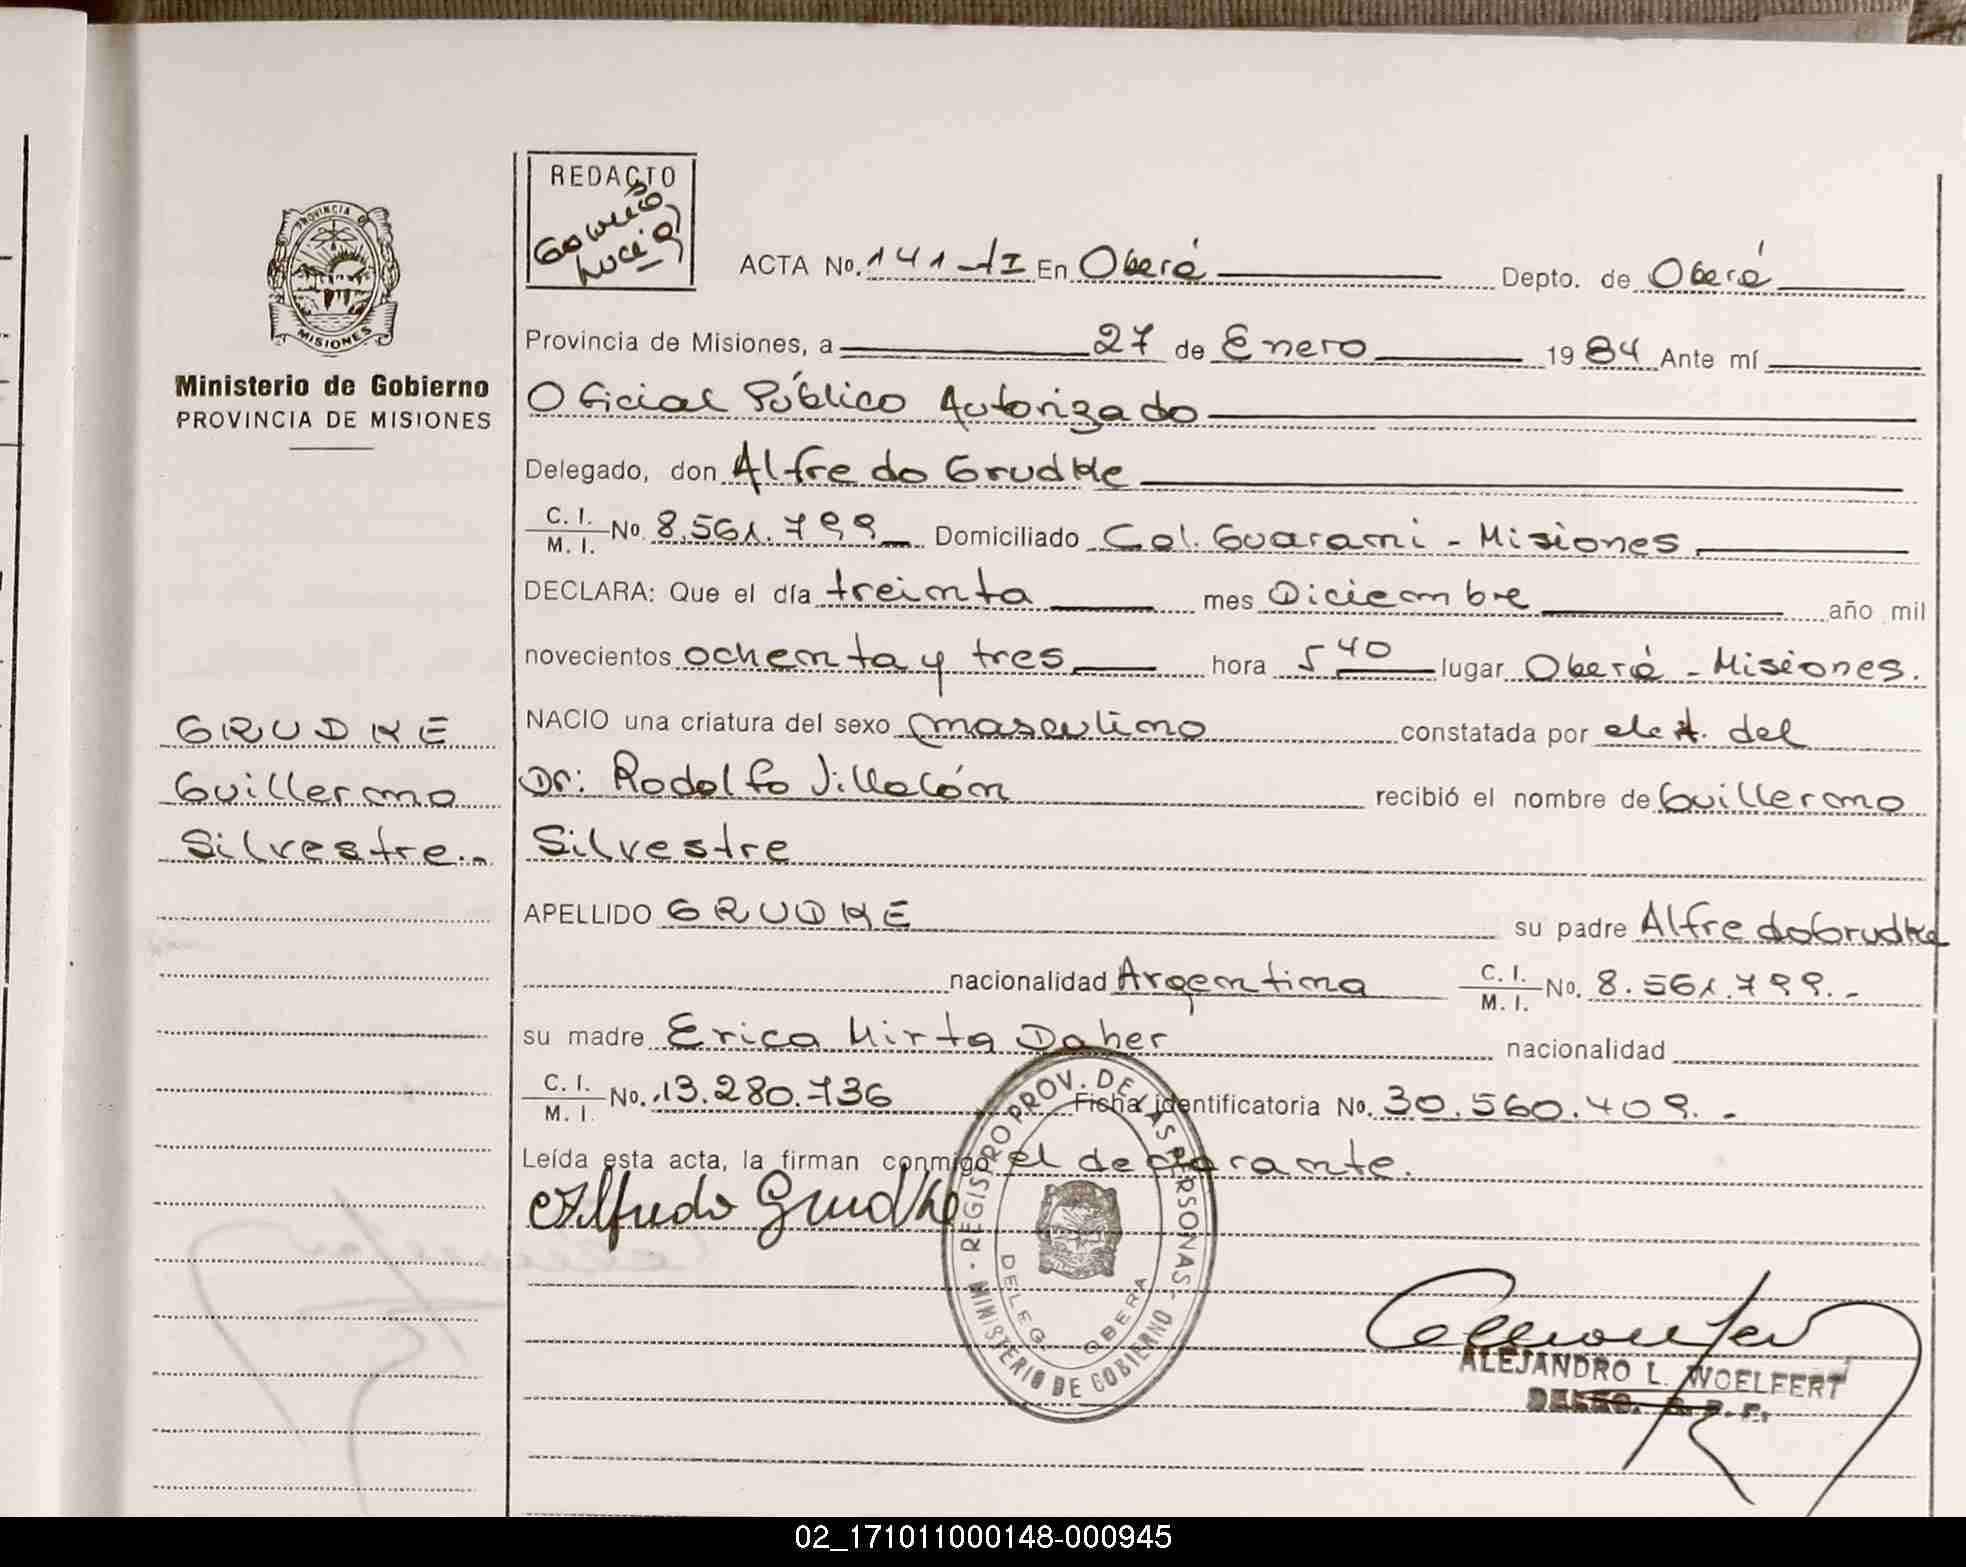 REDACTO
PROVINCIA DE
MISIONES
Ministerio de Gobierno
PROVINCIA DE MISIONES
ACTA No. 141-II En Oberá Depto. de Oberá
Provincia de Misiones, a 27 de Enero 1984 Ante mí
Oficial Público Autorizado
Delegado, don Alfredo Grudke
C. I.
M. I. No. 8.561.799 Domiciliado Col. Guarani - Misiones
DECLARA: Que el día treinta mes Diciembre año mil
novecientos ochenta y tres hora 5 40 lugar Oberá - Misiones.
NACIO una criatura del sexo masculino constatada por el del
Dr: Rodolfo recibió el nombre de Guillermo
Silvestre
APELLIDO GRUDKE su padre Alfredo Grudke
nacionalidad Argentina C. I.
M. I. No. 8.561.799.-
su madre Erica Mirta Daher nacionalidad
C. I.
M. I. No. 13.280.736 Ficha identificatoria No. 30.560.409.-
Leída esta acta, la firman conmigo el declarante.
Alfredo Grudke
GRUDKE
Guillermo
Silvestre.-
REGISTRO PROV. DE LAS PERSONAS - MINISTERIO DE GOBIERNO -
DELEG. OBERA
ALEJANDRO L. WOELFERT
02_171011000148-000945